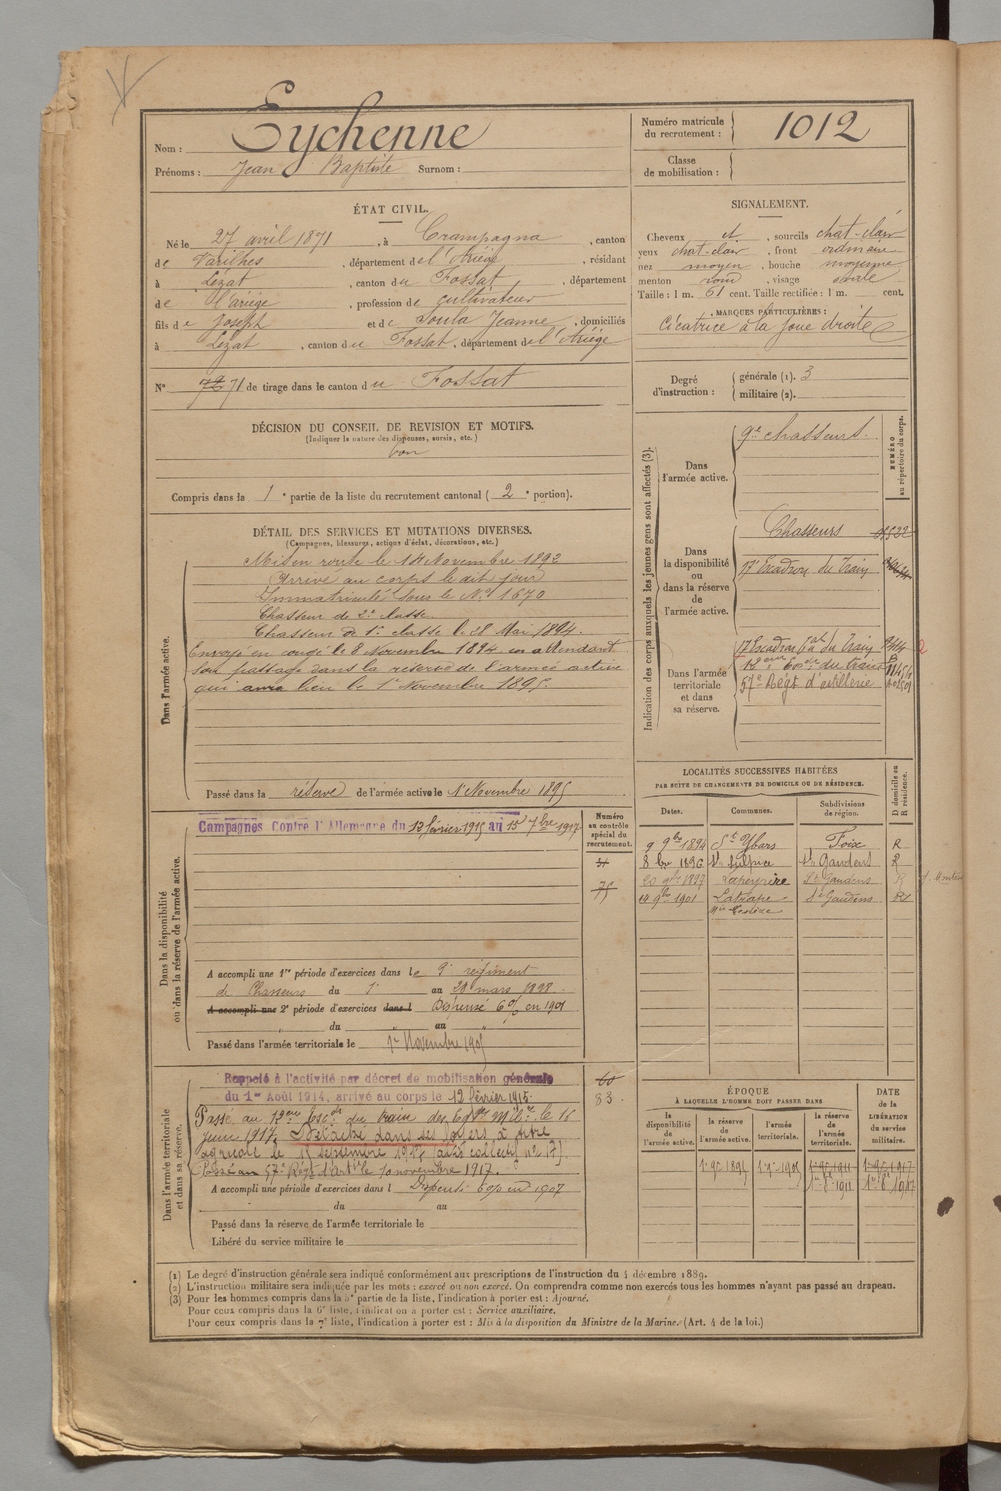 Nom : Eychenne
Prénoms : Jean Baptiste Surnom :
Numéro matricule du recrutement : 1012
Classe de mobilisation :
ÉTAT CIVIL.
Né le 27 avril 1871, à Crampagna, canton
de Varilhes, département de l'Ariège, résidant
à Lézat, canton du Fossat, département
de l'ariège, profession de cultivateur
fils de Joseph et de Soula Jeanne, domiciliés
à Lezat, canton du Fossat, département de l'Ariège
N° 71 de tirage dans le canton du Fossat
SIGNALEMENT.
Cheveux et, sourcils chat-clair
yeux chat-clair, front ordinaire
nez moyen, bouche moyenne
menton rond, visage ovale
Taille : 1 m. 61 cent. Taille rectifiée : 1 m. cent.
MARQUES PARTICULIÈRES :
Cicatrice à la joue droite
Degré d'instruction : générale (1). 3
militaire (2).
DÉCISION DU CONSEIL DE REVISION ET MOTIFS.
(Indiquer la nature des dispenses, sursis, etc.)
bon
Compris dans la 1e partie de la liste du recrutement cantonal (2e portion).
DÉTAIL DES SERVICES ET MUTATIONS DIVERSES.
(Campagnes, blessures, actions d'éclat, décorations, etc.)
Dans l'armée active.
Mis en route le 14 Novembre 1892
Arrivé au corps le dit jour
Immatriculé sous le N° 1670
Chasseur de 2e classe
Chasseur de 1e classe le 28 Mai 1894.
Envoyé en congé le 8 Novembre 1894 en attendant
son passage dans la réserve de l'armée active
qui aura lieu le 1er Novembre 1895
Passé dans la réserve de l'armée active le 1 Novembre 1895
Indication des corps auxquels les jeunes gens sont affectés (3).
NUMÉRO au répertoire du corps.
Dans l'armée active. 9e chasseurs.
Dans la disponibilité ou dans la réserve de l'armée active.
Chasseurs
17e Escadron du Train
Dans l'armée territoriale et dans sa réserve.
17 Escadron tal du Train
57e Régt d'artillerie
Dans la disponibilité ou dans la réserve de l'armée active.
Campagnes Contre l'Allemagne du 13 février 1915 au 15 7bre 1917
Numéro au contrôle spécial du recrutement.
75
A accompli une 1re période d'exercices dans le 9e régiment
de Chasseurs du 1er au 28 mars 1898.
A accompli une 2e période d'exercices dans l Dispensé 6 0/0 en 1901
du au
Passé dans l'armée territoriale le 1er Novembre 1905
LOCALITÉS SUCCESSIVES HABITÉES
PAR SUITE DE CHANGEMENTS DE DOMICILE OU DE RÉSIDENCE.
Dates. Communes. Subdivisions de région. D domicile ou R résidence.
9 9bre 1894 St Ybars Foix R
8 bre 1896 St Sulpice St Gaudens R
20 1897 Lapeyrère St Gaudens R
14 9bre 1901 Latrape St Gaudens R
Dans l'armée territoriale et dans sa réserve.
Rappelé à l'activité par décret de mobilisation générale
du 1er Août 1914, arrivé au corps le 12 février 1915.
83
Passé au Escon du train des Eqges Milres le 16
juin 1917. Détaché dans ses foyers à titre
agricole le 15 septembre 1917 (avis collectif n° 17).
Passé au 57e Régt d'artie le 10 novembre 1917.
A accompli une période d'exercices dans l Dispensé 6 0/0 en 1907
du au
Passé dans la réserve de l'armée territoriale le
Libéré du service militaire le
ÉPOQUE
À LAQUELLE L'HOMME DOIT PASSER DANS
la disponibilité de l'armée active. la réserve de l'armée active. l'armée territoriale. la réserve de l'armée territoriale.
DATE de la LIBÉRATION du service militaire.
1 9bre 1895 1 9bre 1905 1 9bre 1911 1 9bre 1917
(1) Le degré d'instruction générale sera indiqué conformément aux prescriptions de l'instruction du 4 décembre 1889.
(2) L'instruction militaire sera indiquée par les mots : exercé ou non exercé. On comprendra comme non exercés tous les hommes n'ayant pas passé au drapeau.
(3) Pour les hommes compris dans la 5e partie de la liste, l'indication à porter est : Ajourné.
Pour ceux compris dans la 6e liste, l'indication à porter est : Service auxiliaire.
Pour ceux compris dans la 7e liste, l'indication à porter est : Mis à la disposition du Ministre de la Marine. (Art. 4 de la loi.)